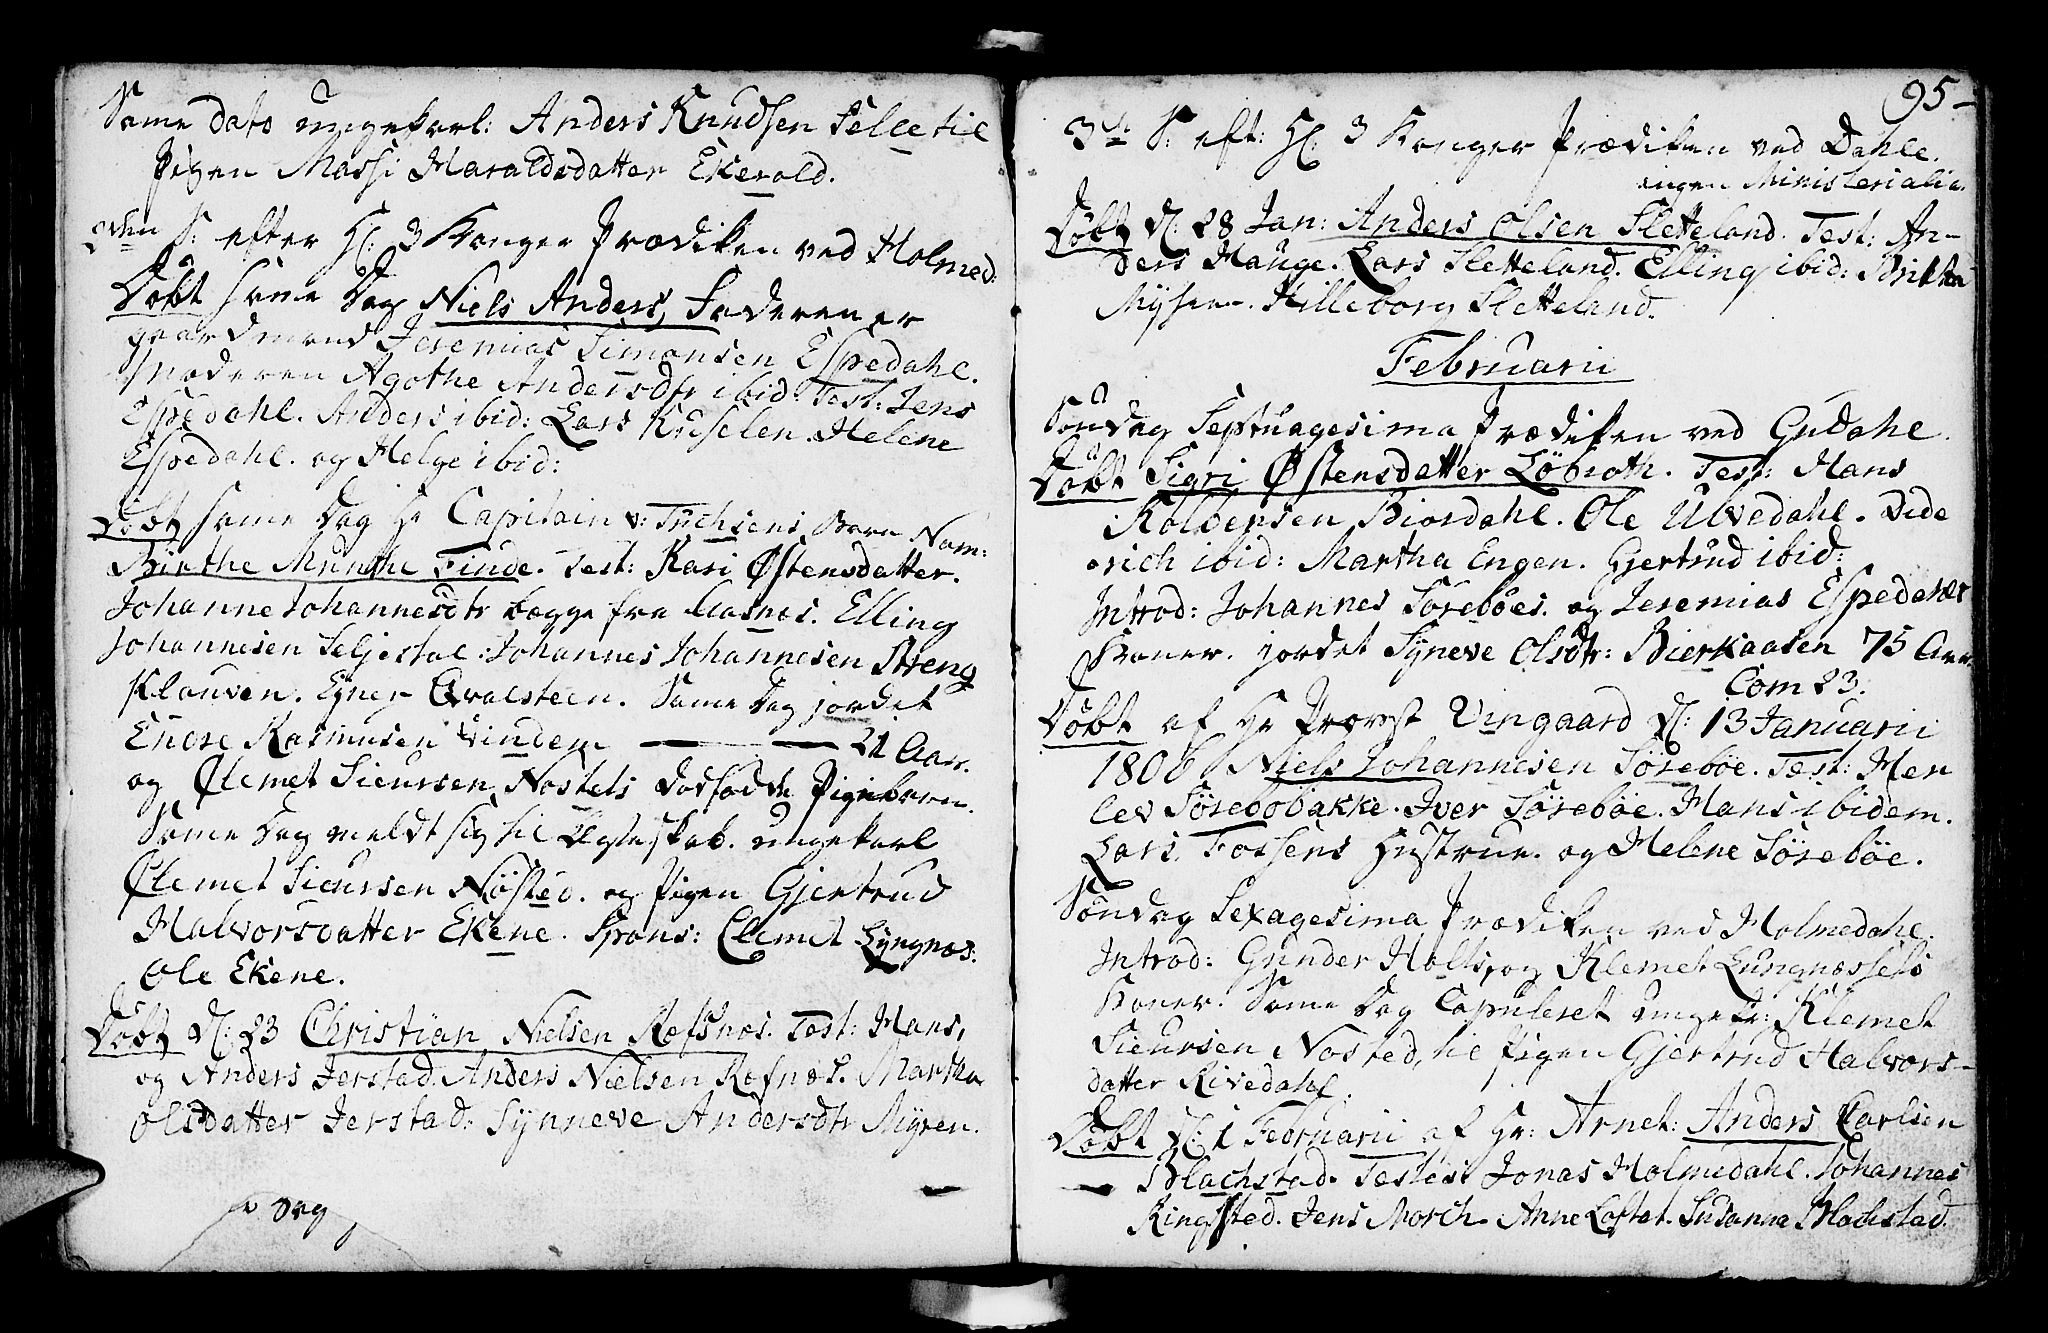 Same dato ungekarl: Anders Knudsen Selle til
Pigen Massi Haraldsdatter Ekerold.
2den S: efter Hl: 3 Konger Prædiken ved Holmed:
Döbt same Dag Niels Anders, Faderen er
gaardmand Jeremias Simonsen Espedahl.
Moderen Agothe Andersdtr ibid. Test: Jens
Espedahl. Anders ibid: Lars Helene
Espedahl. og Helge ibid:
Döbt same Dag Hr Capitain v: Tuchsens Barn Nom:
Birthe Munthe Finde. Test: Kari Østensdatter.
Johanne Johannesdtr begge fra Aasnes. Elling
Johannesen Seljestal: Johannes Johannesen Breng
Klouven. Egner Qvalsteen. Same Dag jordet
Endre Rasmusen Vindem — — 21 Aar.
og Clemet Sieursen Nøsteds dødfødde Pigebarn.
Same Dag meldt sig til Egteskab. ungekarl
Clemet Sieursen Nøsted. og Pigen Gjertrud
Halvorsdatter Ekene. Spons: Clemet Lyngnæs:
Ole Ekene.
Döbt d: 23 Christian Nielsen Refsnes. Test: Hans,
og Anders Jerstad. Anders Nielsen Refnes. Martha
Olsdatter Jerstad: Synneve Andersdtr Myren.
Dag
95
3die S: eft: Hl: 3 Konger Prædiken ved Dahle.
ingen Ministerialia.
Döbt d: 28 Jan: Anders Olsen Sletteland. Test: An-
ders Hauge. Lars Sletteland. Elling ibid: Britha
Myhren. Hilleborg Sletteland.
Februarii
Söndag Septuagesima Prædiken ved Gudahl.
Döbt Sigri Østensdatter Löbroth. Test: Hans
Kolbensen Biordahl. Ole Ulvedahl. Dide
rich ibid: Martha Engen. Gjertrud ibid:
Introd: Johannes Sörebøes. og Jeremias Espedals
Koner. jordet Syneve Olsdtr: Bierkaasen 75 Aar.
Com 23.
Döbt af Hr Provst Vingaard d: 13 Januarii
1806 Niels Johannesen Sörebøe. Test: Her
lev Sörebøbakke. Iver Sörebøe. Hans ibidem.
Lars Fossens Hustrue. og Helene Sörebøe.
Söndag Sexagesima Prædiken ved Holmedahl.
Introd: Gunder Holts, og Klemet Lungnæssets
Koner. Same Dag Copuleret ungek: Klemet
Sieursen Nøsted, til Pigen Gjertrud Halvors-
datter Rivedahl.
Döbt d: 1 Februarii af Hr: Arnet: Anders Carlsen
Blachstad. Testes: Jonas Holmedahl. Johannes
Ringsted. Jens Morch. Anne Loftet. Susanna Blachstad.